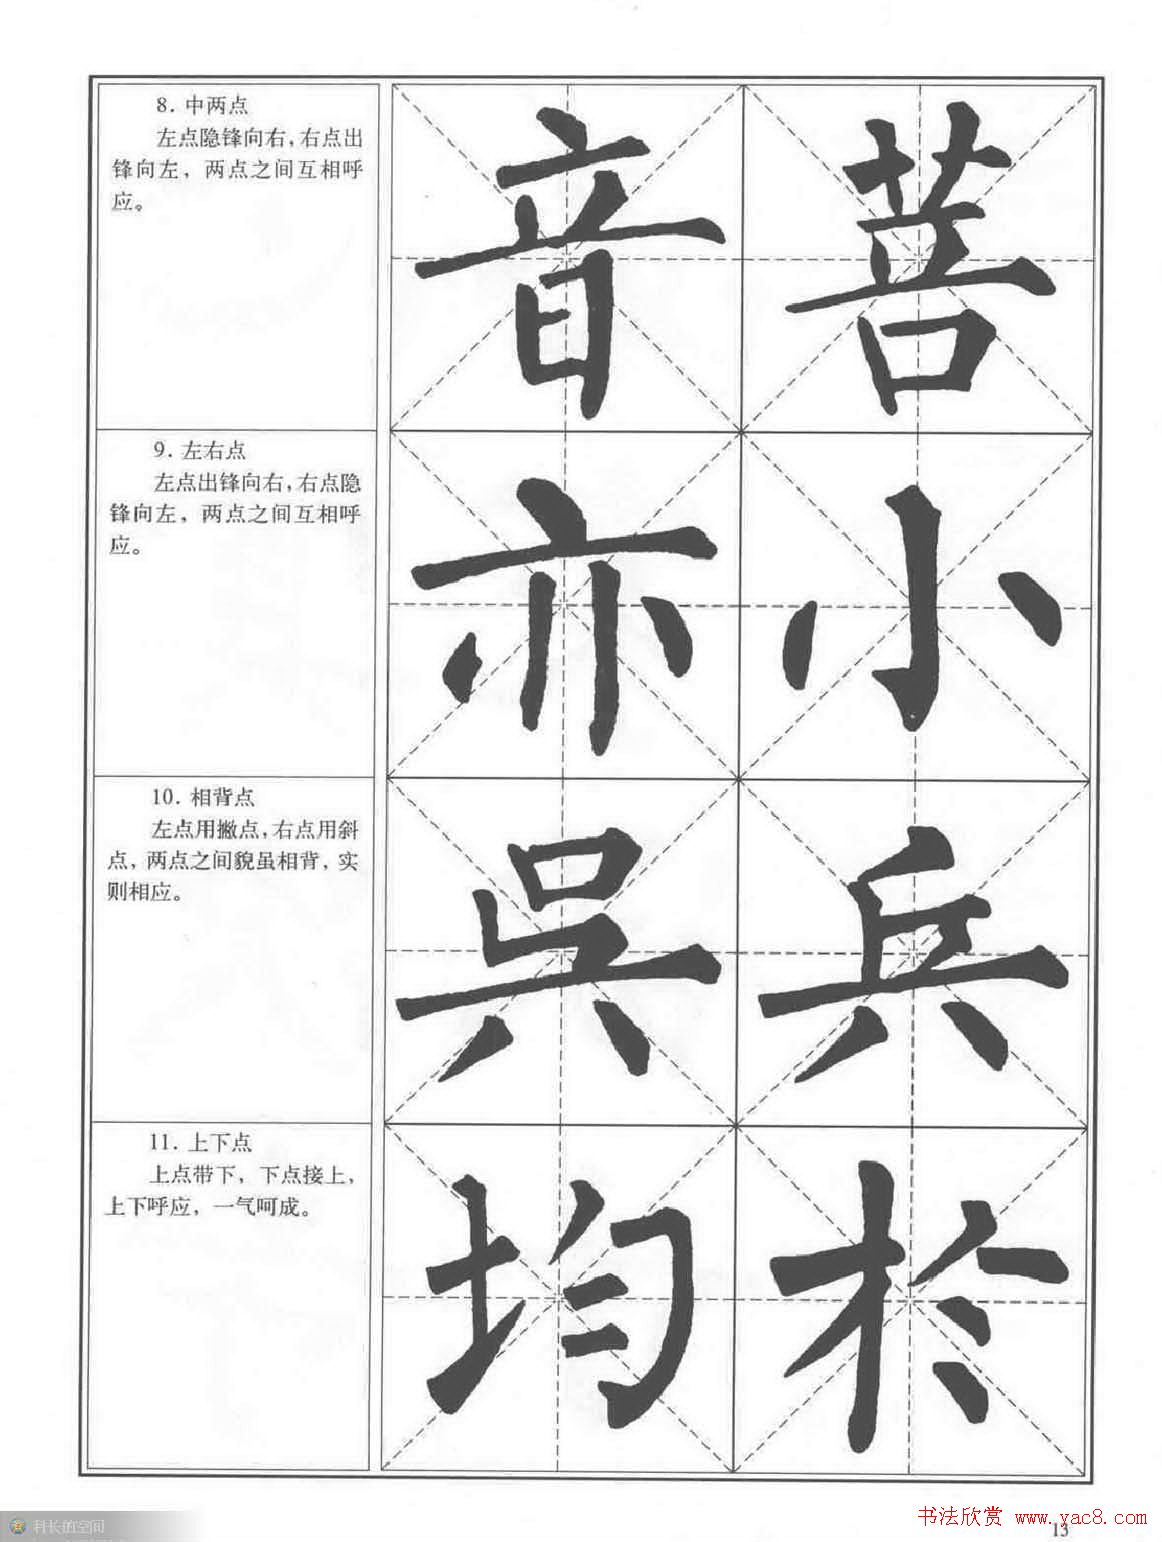 8. 中两点
左点隐锋向右，右点出
锋向左，两点之间互相呼
应。
音 菩
9. 左右点
左点出锋向右，右点隐
锋向左，两点之间互相呼
应。
亦 小
10. 相背点
左点用撇点，右点用斜
点，两点之间貌虽相背，实
则相应。
吳 兵
11. 上下点
上点带下，下点接上，
上下呼应，一气呵成。
均 於
科长的空间
书法欣赏 www.yac8.com
13